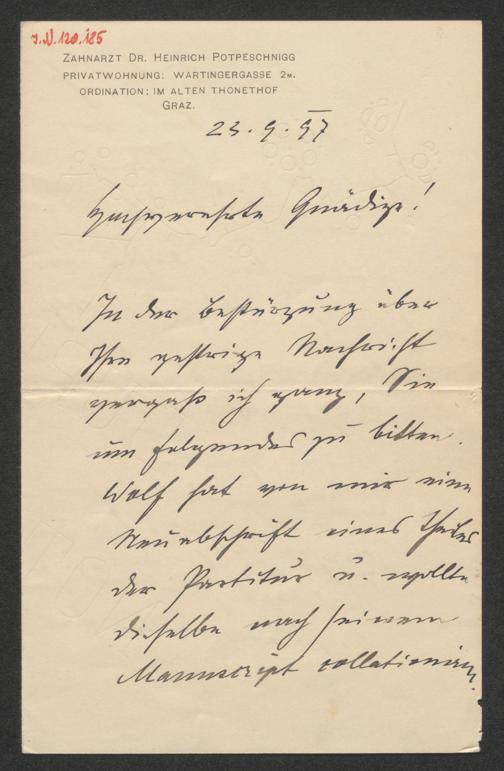 I.N. 120.185
ZAHNARZT DR. HEINRICH POTPESCHNIGG
PRIVATWOHNUNG: WARTINGERGASSE 2M.
ORDINATION: IM ALTEN THONETHOF
GRAZ.
23. 9. 97
Hochverehrte Gnädige!
In der Bestürzung über
Ihre gestrige Nachricht
vergaß ich ganz, Sie
um folgendes zu bitten.
Wolf hat von mir eine
Neuabschrift eines Theiles
der Partitur u. wollte
dieselbe nach seinem
Manuscript collationiren.